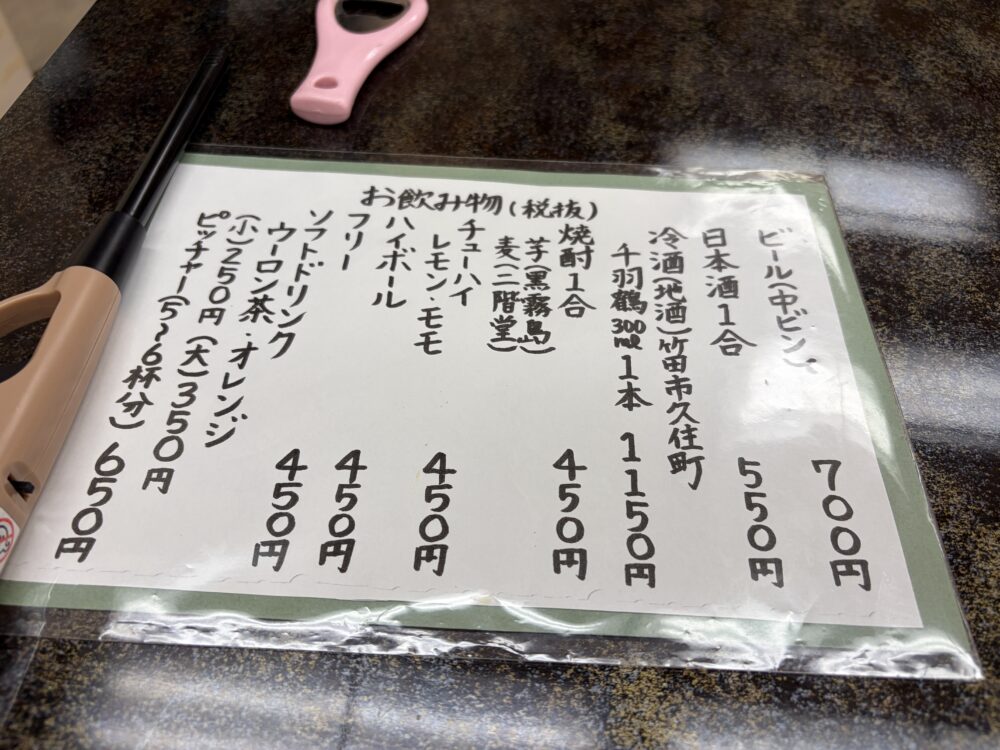 お飲み物(税抜)
ビール(中ビン) 700円
日本酒1合 550円
冷酒(地酒)竹田市久住町
千羽鶴300ml 1本 1150円
焼酎1合 450円
芋(黒霧島)
麦(二階堂)
チューハイ
レモン・モモ 450円
ハイボール 450円
フリー 450円
ソフトドリンク
ウーロン茶・オレンジ
(小)250円(大)350円
ピッチャー(5〜6杯分) 650円